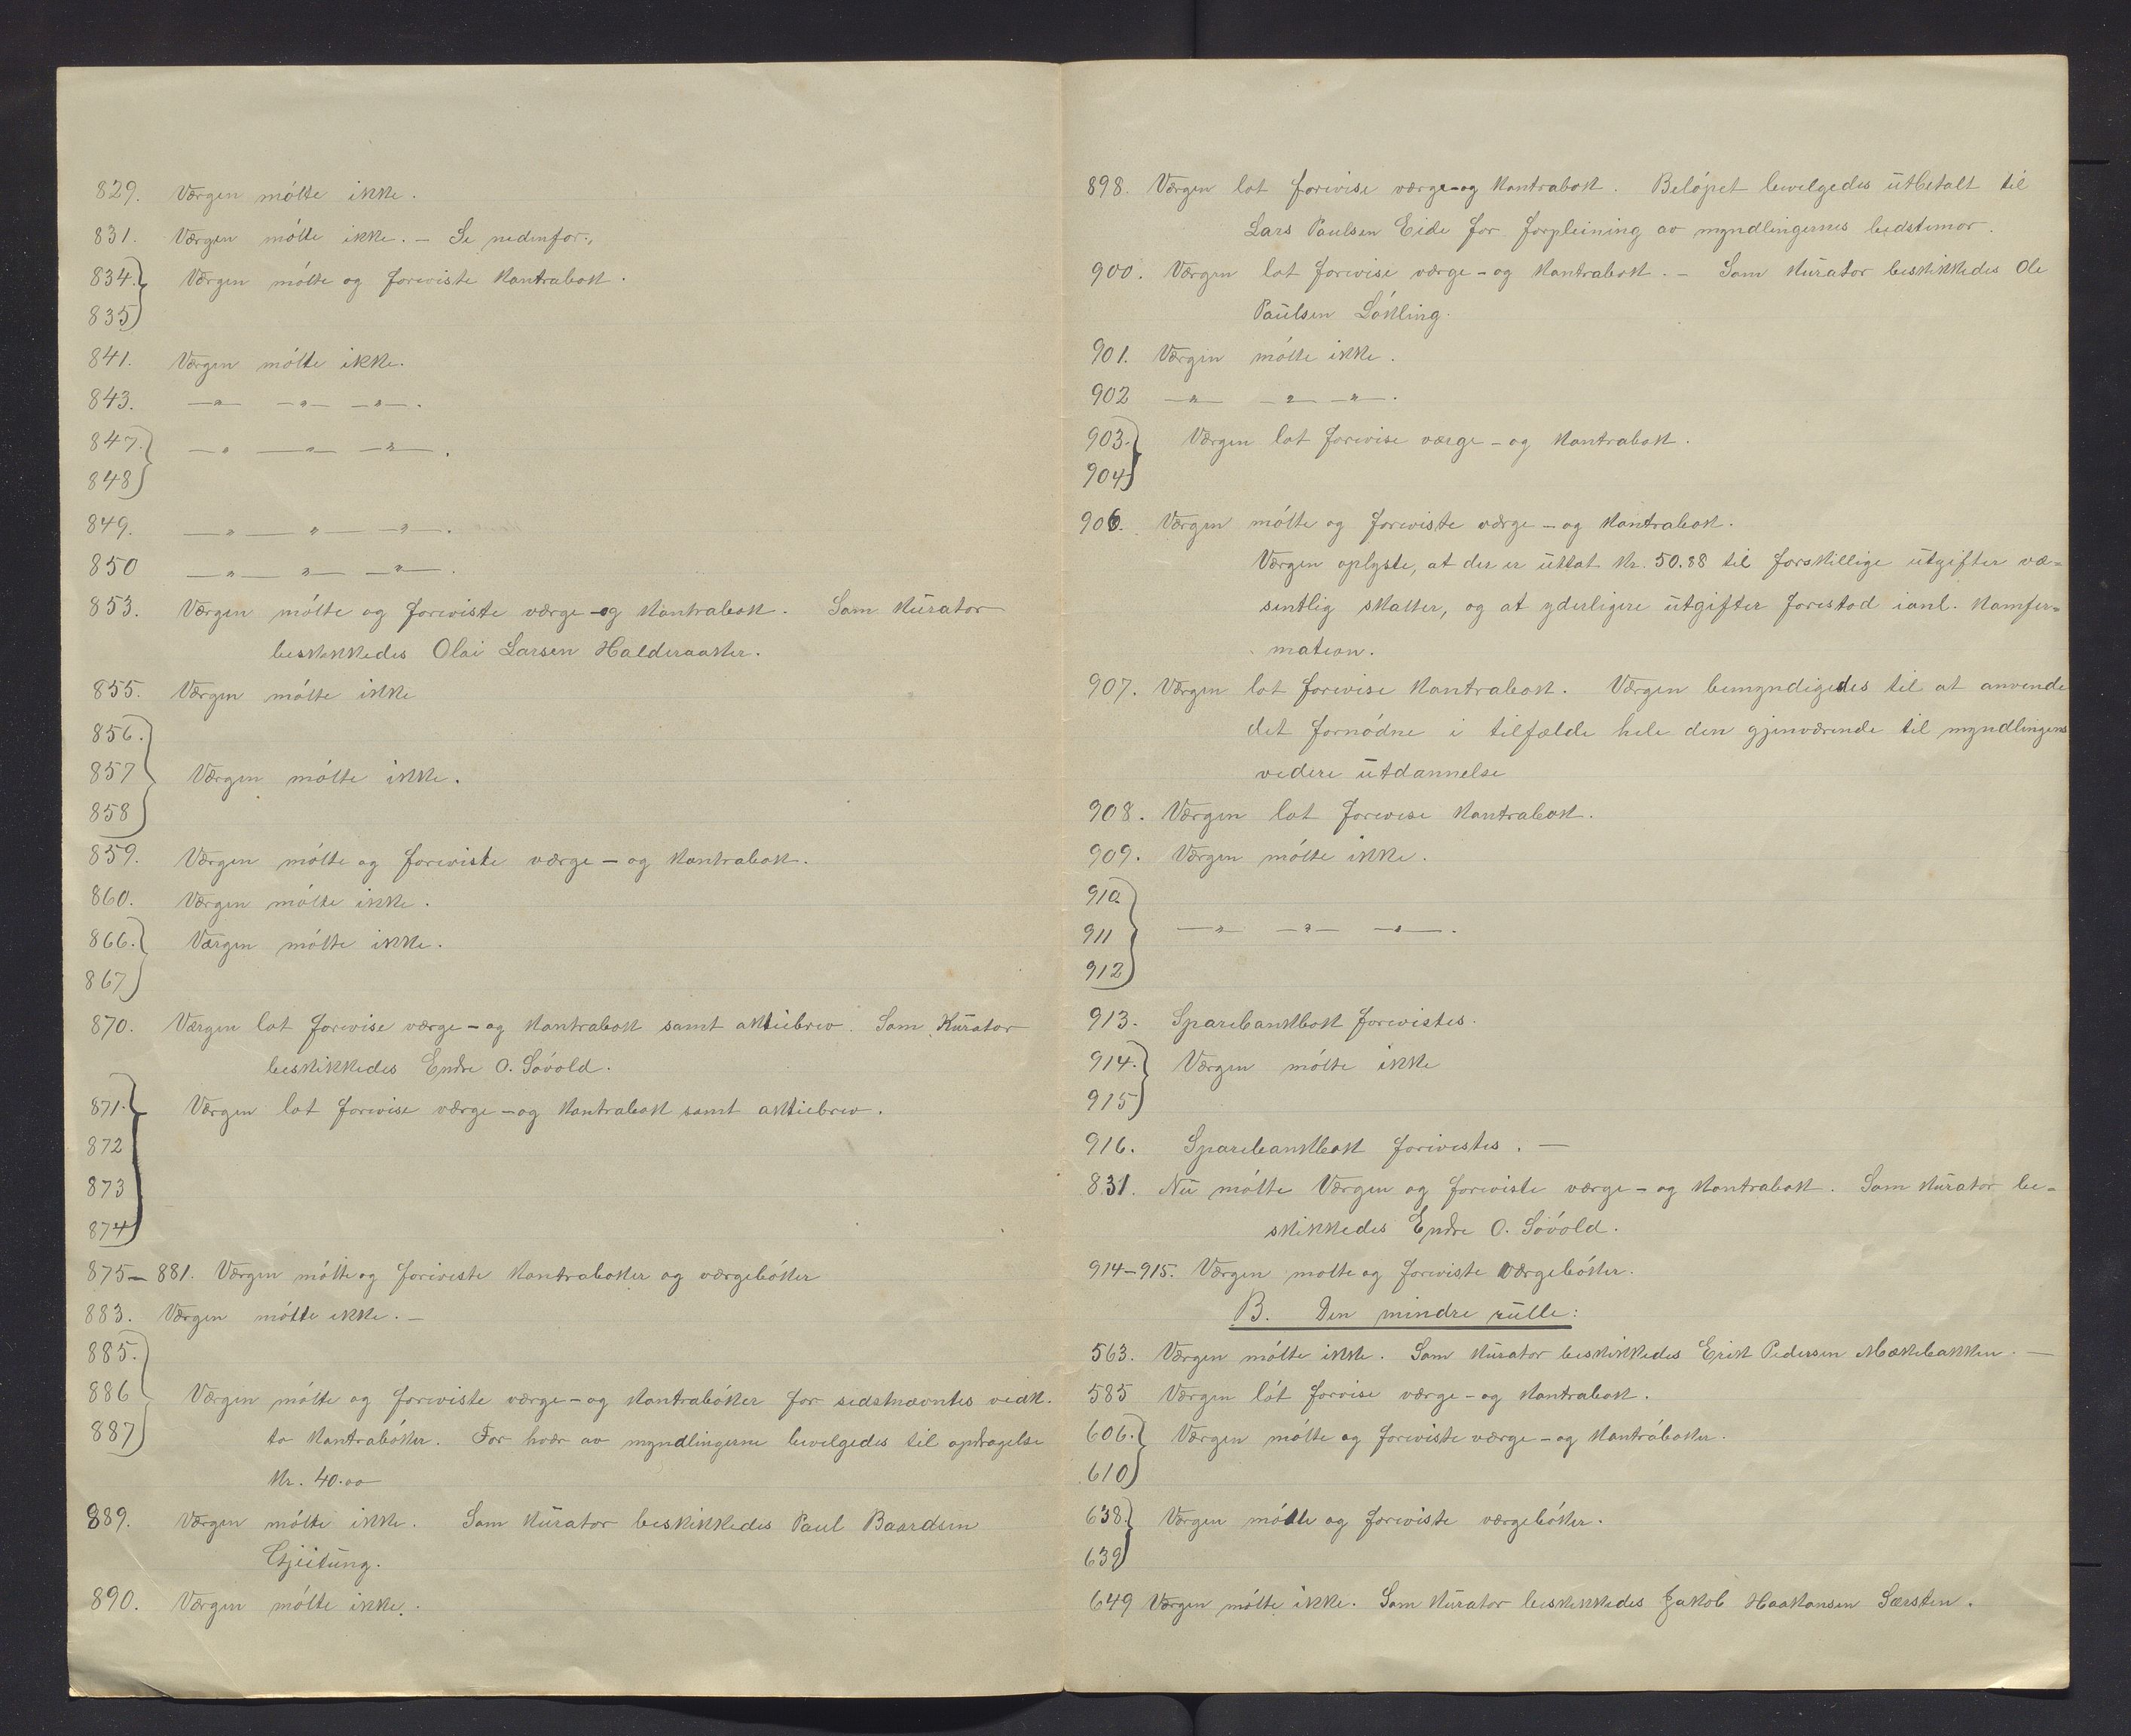 829. Værgen mötte ikke.
831. Værgen mötte ikke. – Se nedenfor.,
834. Værgen mötte og forewiste Kontrabok.
835
841. Værgen mötte ikke.
843. —„— —„— —„—.
847. —„— —„— —„—.
848
849. —„— „— —„—.
850 —„— „— —„—.
853. Værgen mötte og forewiste værge-og Kontrabok. Som Kurator
beskikkedes Olai Larsen Halderaaker.
855. Værgen mötte ikke
856.
857 Værgen mötte ikke.
858
859. Værgen mötte og forewiste værge – og Kontrabok.
860. Værgen mötte ikke.
866. Værgen mötte ikke.
867
870. Værgen lot forevise værge – og Kontrabok samt aktiebrev. Som Kurator
beskikkedes Endre O. Sövold.
871. Værgen lot forevise værge – og Kontrabok samt aktiebrev.
872
873
874
875 – 881. Værgen mötte og foreviste Kontraboker og værgeböker
883. Værgen mötte ikke. –
885.
886 Værgen mötte og foreviste værge – og Kontraböker for sidstnævntes vedk.
887 to Kontraböker. For hver av myndlingerne bevilgedes til opdragelse
Kr. 40.00
889. Værgen mötte ikke. Som Kurator beskikkedes Paul Baardsen
Gjeitung.
890. Værgen mötte ikke.
898. Værgen lot forevise værge-og Kontrabok. Belöpet bevilgedes utbetalt til
Lars Paulsen Eide for forpleining av myndlingernes bedstemor.
900. Værgen lot forevise værge – og Kontrabok. – Som Kurator beskikkedes Ole
Paulsen Lökling.
901. Værgen mötte ikke.
902 —„— —„— —„—.
903. Værgen lot forevise værge – og Kontrabok.
904
906. Værgen mötte og foreviste værge – og Kontrabok.
Værgen oplyste, at der er uttat Kr. 50.88 til forskillige utgifter væ-
sentlig skatter, og at yderligere utgifter forestod ianl. Konfir-
mation.
907. Værgen lot forevise Kontrabok. Værgen bemyndigedes til at anvende
det fornödne i tilfælde hele den gjenværende til myndlingens
videre utdannelse
908. Værgen lot forevise Kontrabok.
909. Værgen mötte ikke.
910
911 —„— —„— —„—.
912
913. Sparebankbok forevistes.
914. Værgen mötte ikke
915
916. Sparebankbok forevistes. —
831. Nu mötte Værgen og foreviste værge – og Kontrabok. Som Kurator be-
skikkedes Endre O. Sövold.
914–915. Værgen motte og foreviste værgeböker.
B. Den mindre rulle:
563. Værgen mötte ikke. Som Kurator beskikkedes Erik Pedersen Mækebakken. —
585 Værgen löt forvise værge – og Kontrabok.
606. Værgen mötte og foreviste værge – og Kontráboker.
610
638. Værgen mötte og foreviste værgeböker.
639
649 Værgen mötte ikke. Som Kurator beskikkedes Jakob Haakonsen Særsten.